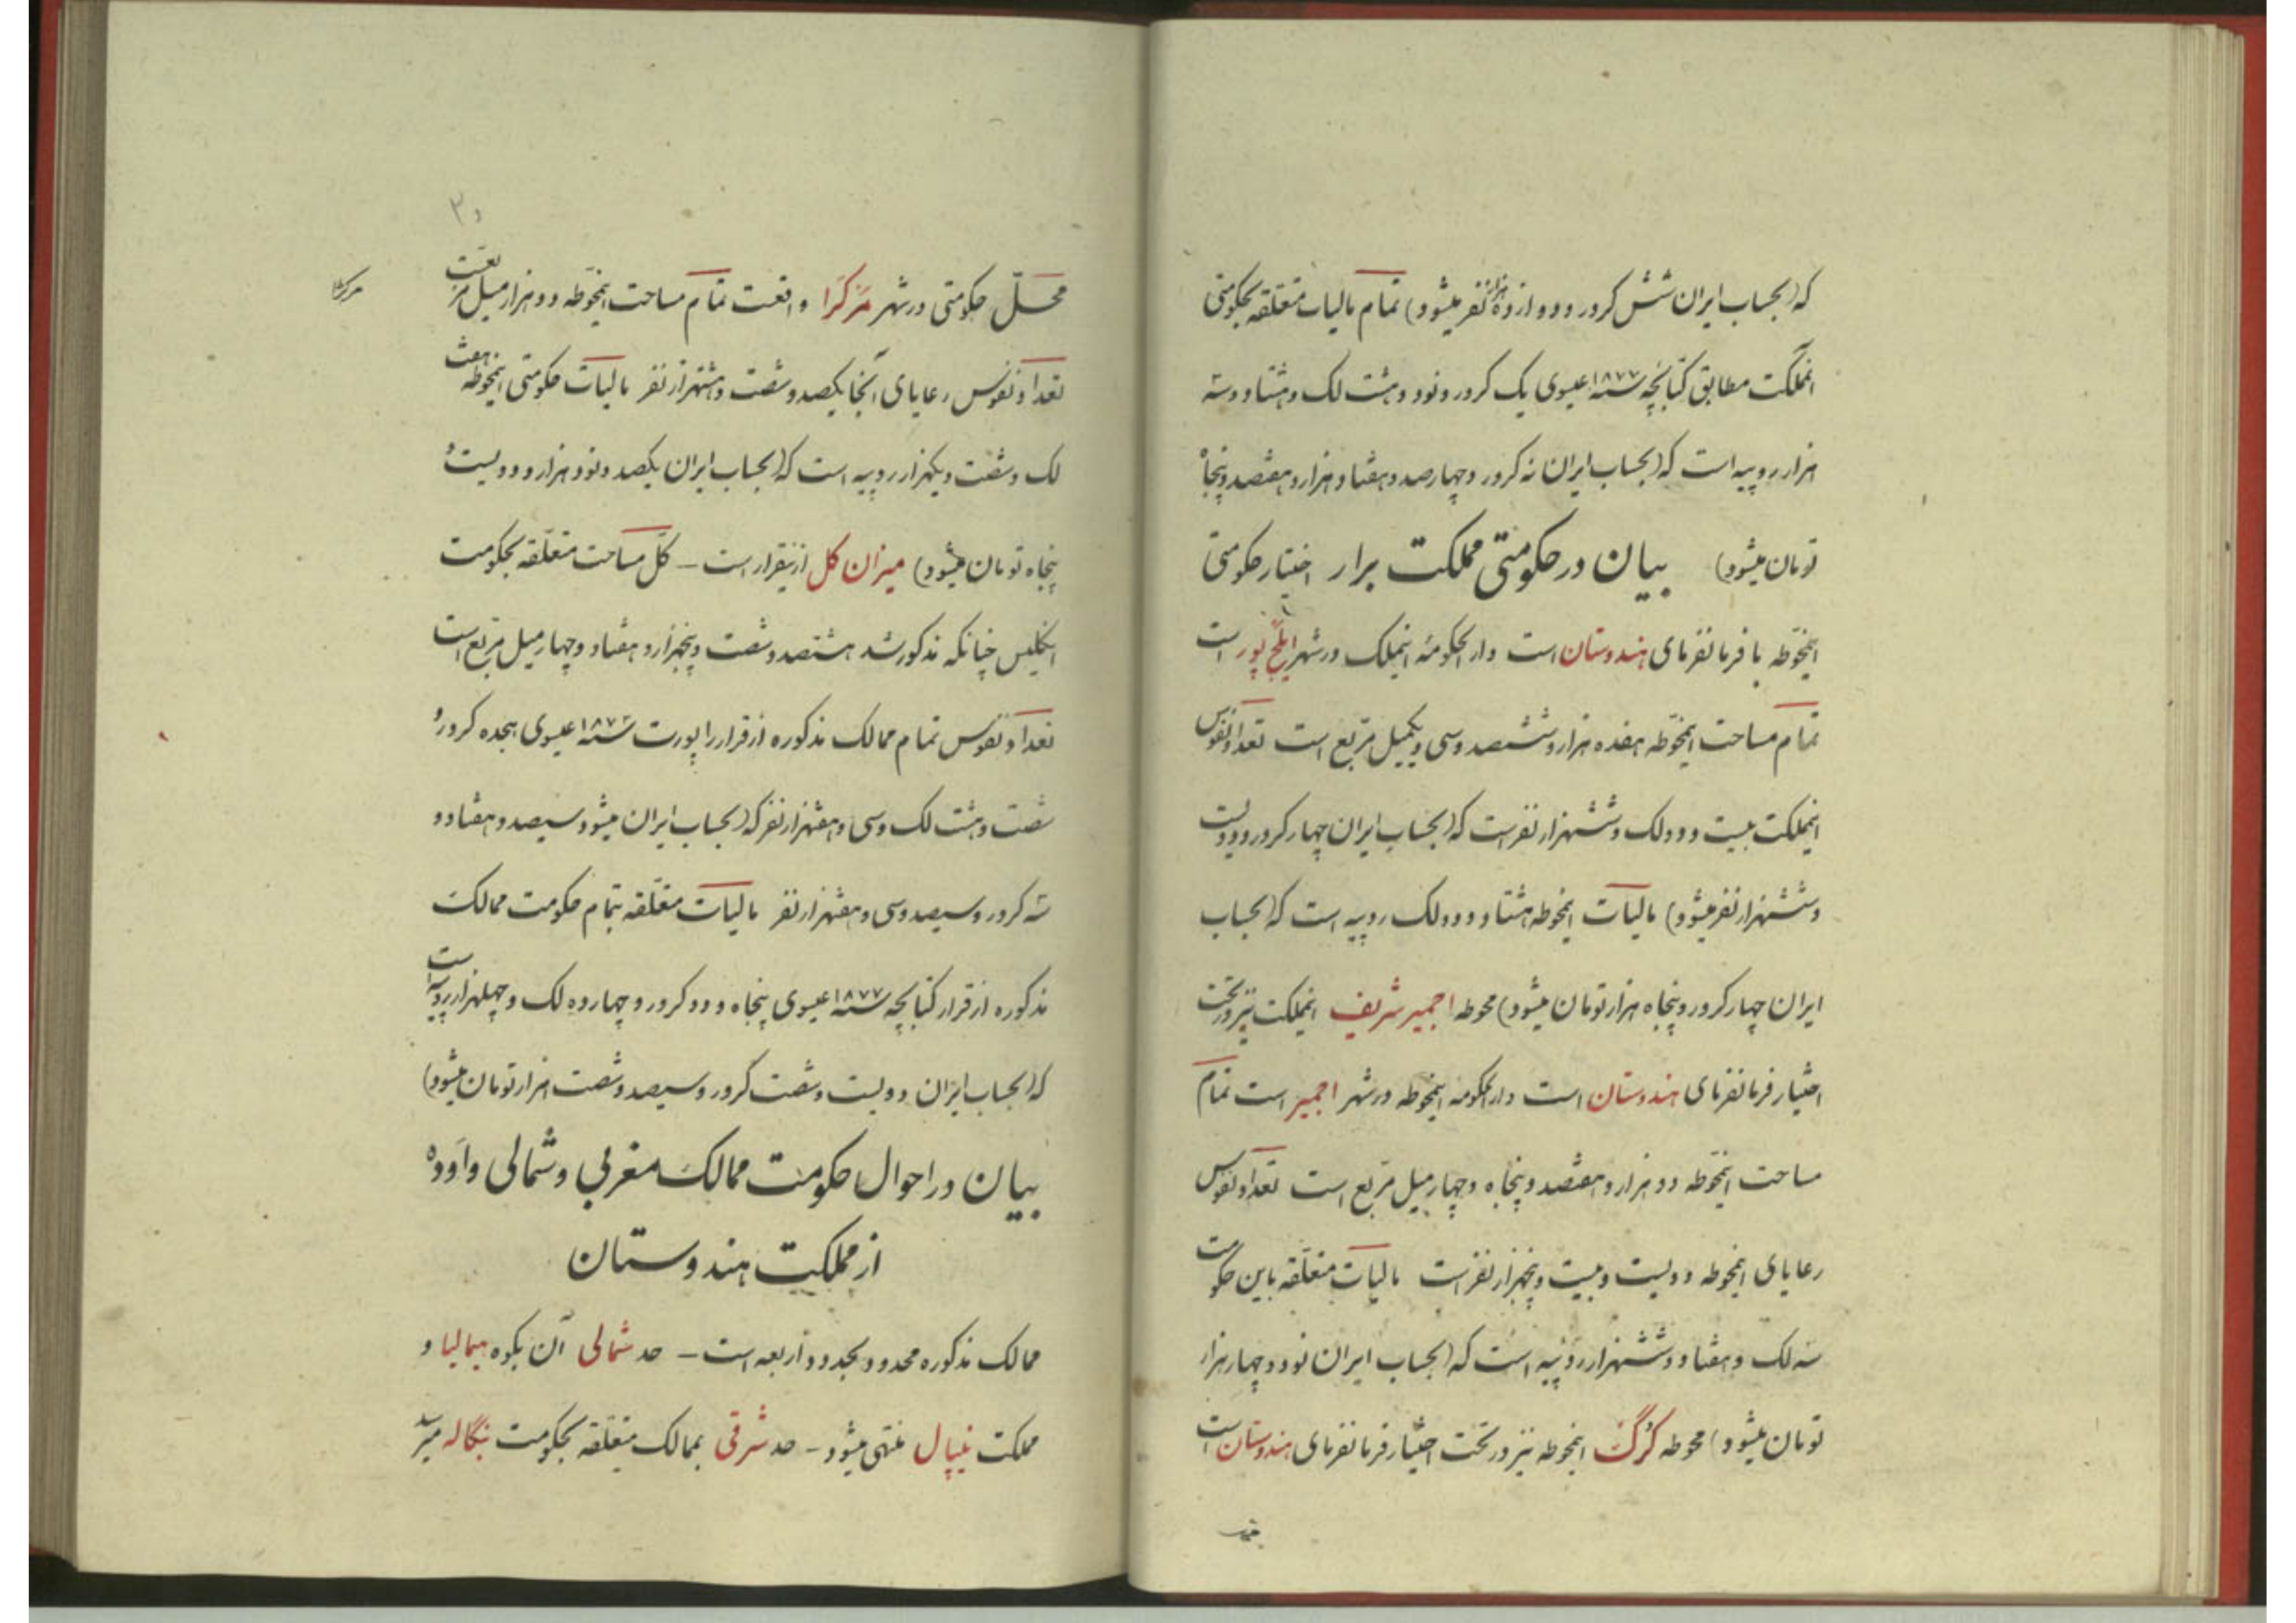 که (بحساب ایران شش کرور و دوازده هزار نفر میشود) تمام مالیات متعلقه بحکومتی
انمملکت مطابق کتابچه سنه ۱۸۷۷ عیسوی یک کرور و نود و هشت لک و هشتاد و سه
هزار روپیه است که (بحساب ایران نه کرور و چهارصد و هفتاد هزار و هفتصد و پنجاه
تومان میشود) بیان در حکومتی مملکت برار اختیار حکومتی
اینمحوطه با فرمانفرمای هندوستان است دار الحکومهٔ اینملک در شهر ایلچ پور است
تمام مساحت اینمحوطه هفده هزار و ششصد و سی و یکمیل مربع است تعداد نفوس
اینمملکت بیست و دو لک و ششهزار نفر است که (بحساب ایران چهار کرور و دویست
و ششهزار نفر میشود) مالیات اینمحوطه هشتاد و دو لک روپیه است که (بحساب
ایران چهار کرور و پنجاه هزار تومان میشود) محوطه اجمیر شریف اینمملکت نیز در تحت
اختیار فرمانفرمای هندوستان است دار الحکومه اینمحوطه در شهر اجمیر است تمام
مساحت اینمحوطه دو هزار و هفتصد و پنجاه و چهار میل مربع است تعداد نفوس
رعایای اینمحوطه دویست و بیست و پنجهزار نفر است مالیات متعلقه باین حکومت
سه لک و هفتاد و ششهزار روپیه است که (بحساب ایران نود و چهار هزار
تومان میشود) محوطه کرگ اینمحوطه نیز در تحت اختیار فرمانفرمای هندوستان است
محل حکومتی در شهر مرکرا واقعست تمام مساحت اینمحوطه دو هزار میل مربعست
تعداد نفوس رعایای آنجا یکصد و شصت و هشتهزار نفر مالیات حکومتی اینمحوطه هفت
لک و شصت و یکهزار روپیه است که (بحساب ایران یکصد و نود هزار و دویست و
پنجاه تومان میشود) میزان کل ازینقرار است – کل مساحت متعلقه بحکومت
انگلیس چنانکه مذکور شد هشتصد و شصت و پنجهزار و هفتاد و چهار میل مربع است
تعداد نفوس تمام ممالک مذکوره از قرار راپورت سنه ۱۸۷۲ عیسوی هیجده کرور و
شصت و هشت لک و سی و هفتهزار نفر که (بحساب ایران میشود سیصد و هفتاد و
سه کرور و سیصد و سی و هفتهزار نفر مالیات متعلقه بتمام حکومت ممالک
مذکوره از قرار کتابچه سنه ۱۸۷۷ عیسوی پنجاه و دو کرور و چهارده لک و چهلهزار روپیه است
که (بحساب ایران دویست و شصت کرور و سیصد و شصت هزار تومان میشود)
بیان در احوال حکومت ممالک مغربی و شمالی و اوده
از مملکت هندوستان
ممالک مذکوره محدود بحدود اربعه است – حد شمالی آن بکوه هیمالیا و
مملکت نیپال منتهی میشود – حد شرقی بممالک متعلقه بحکومت بنگاله میرسد